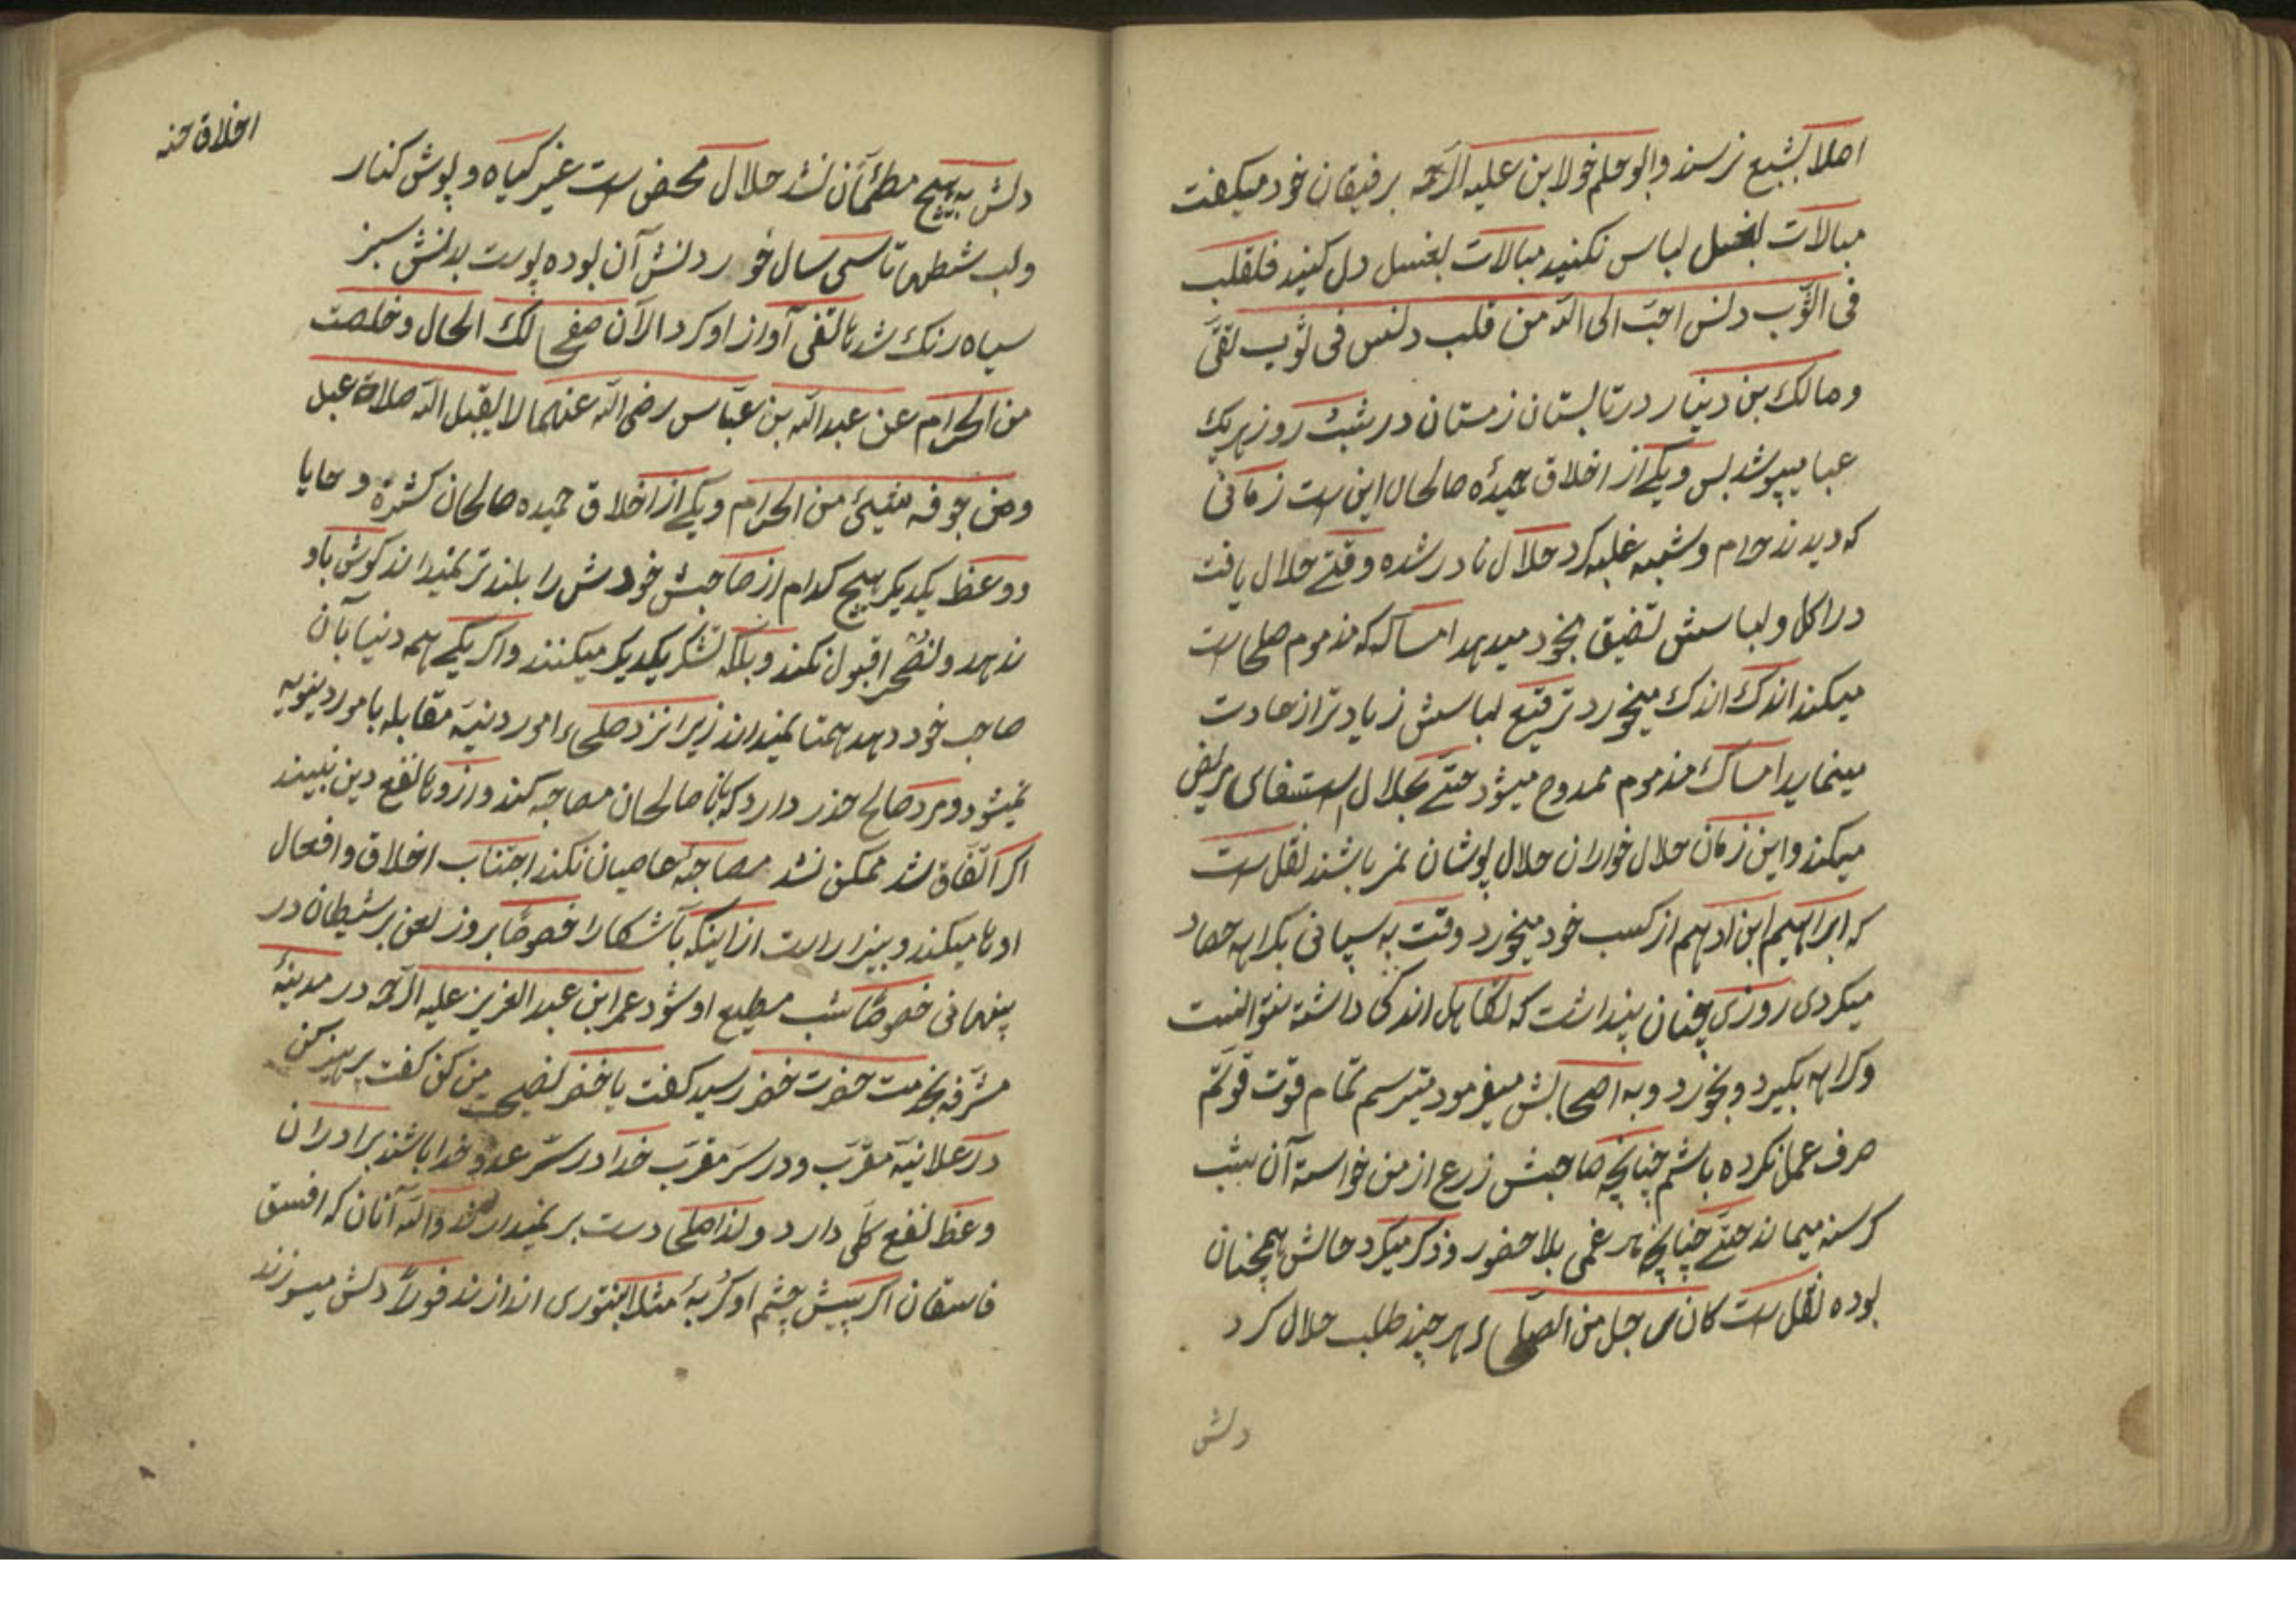 اصلا بشبع نرسند و ابو حلم خولا بن علیه الرحمه برفیقان خود میکفت
مبالات بغسل لباس نکنید مبالات بغسل دل کنید فلقلب
فی الثوب دلنس احبّ الی الله من قلب دلنس فی ثوب لقیّ
و مالک بن دینار در تابستان زمستان در شب روز بیک
عبا میپوشد بس و یکے از اخلاق حمیدهٔ صالحان این است زمانی
که دیدند حرام و شبهه غلبه کرد حلال نادر شده وقتے حلال یافت
در اکل و لباسش تضیق بخود میدهد امساکه که مذموم صلحا ست
میکند اندک اندک میخورد ترقیع لباسش زیادتر از عادت
مینماید امساک مذموم ممدوح میشود حتّے بحلال استشفای مریض
میکند و این زمان حلال خواران حلال پوشان نمر باشند نقل ست
که ابراهیم ابن ادهم از کسب خود میخورد وقت به سپانی بکرایه حصاد
میکردی روزی چنان پنداشت که تکاهل اندکی داشته نتوانست
و کرایه بکیرد و بخورد و به اصحابش میفرمود میترسم تمام قوت قوتّم
صرف عمل نکرده باشم چنانچه صاحبش زرع از من خواسته آن بشب
کرسنه میماند حتّے چنانچه هر غمی بلا حضور و ذکر میکرد حالش همچنان
بوده نقل ست کان رجل من الصلحاء هر چند طلب حلال کرد
دلش
اخلاق حسنه
دلش به هیچ مطمأن نشد حلال محض ست غیر کیاه و پوش کنار
و لب شطها تا سی سال خوردنش آن بوده پوست بدنش سبز
سیاه رنک شد هاتفی آواز او کرد الآن صفی لک الحال و خلصت
من الحرام عن عبد الله بن عبّاس رضی الله عنهما لا یقبل الله صلاة عبد
و من جوفه شیئ من الحرام و یکے از اخلاق حمیده صالحان کثرة وصایا
و وعظ یکدیکر هیچ کدام از صاحبش خودش را بلند تر نمیداند کوش باو
ندهد و نصح را قبول نکند و بلکه تشکر یکدیکر میکنند و اکر یکے همه دنیا بآن
صاحب خود دهد همتا نمیداند زیرا نزد صلحاء امور دینیّه مقابله با امور دنیویه
نمیشود و مرد صالح حذر دارد که با نا صالحان مصاحبه کند و از او نا نفع دین نبیند
اکر اتّفاق شد ممکن نشد مصاحبهٔ عاصیان نکند اجتناب اخلاق و افعال
اوها میکند و بیزار است از اینکه بآشکارا خصوصا بروز لعن بر شیطان در
پنهانی خصوصا شب مطیع او شود عمر ابن عبد العزیز علیه الرحمه در مدینهٔ
مشرّفه بخدمت حضرت خضر رسید کفت یا خضر نصیحت من کن کفت پرهیز کن
در علانیّه مقرّب و در سر مقرّب خدا در سرّ عدو خدا باشند برادران
وعظ نفع کلی دارد و لذا صلحا دست بر نمیدارند والله آنان که افسق
فاسقان اکر پیش چشم او کربهٔ مثلا بتنوری اندازند فورا دلش میسوزند